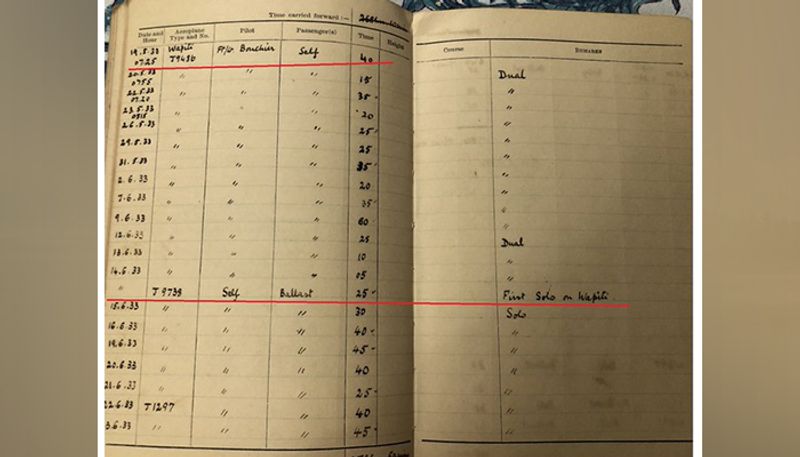 Time carried forward :—
Date and Hour Aeroplane Type and No. Pilot Passenger(s) Time Height Course REMARKS
19.5.33 Wapiti Bouchier Self
0725 T9416 40
20.5.33 " " Dual
0755 " 15
22.5.33 " " " 35 "
0720
23.5.33 " " " 20 "
0515
26.5.33 " " " 25 "
29.5.33 " " " 25 "
31.5.33 " " " 35 "
2.6.33 " " " 20 "
7.6.33 " " " 35 "
9.6.33 " " " 60 "
12.6.33 " " " 25 Dual
13.6.33 " " " 10 "
14.6.33 " " " 05 "
" Self Ballast 25 First Solo on Wapiti
15.6.33 " " " 30 Solo
16.6.33 " " " 40 "
19.6.33 " " " 45 "
20.6.33 " " " 40 "
21.6.33 " " " 25 "
22.6.33 T1297 " " 40 "
3.6.33 " " " 45 "